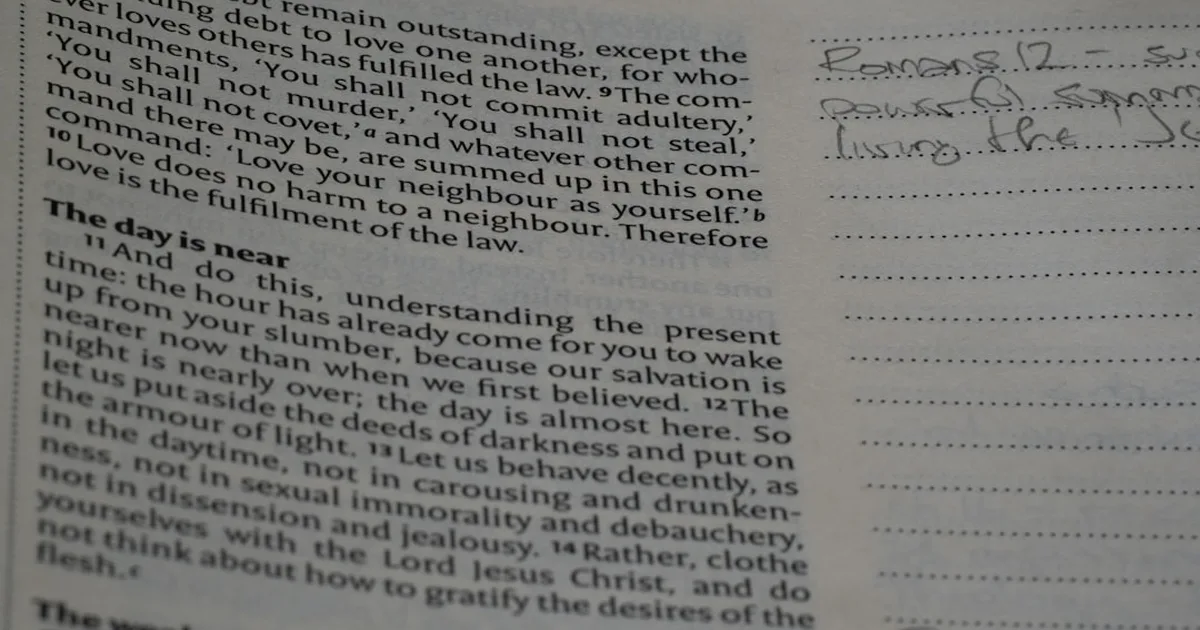 remain outstanding, except the
debt to love one another, for who-
ever loves others has fulfilled the law. 9 The com-
mandments, ‘You shall not commit adultery,’
‘You shall not murder,’ ‘You shall not steal,’
‘You shall not covet,’ a and whatever other com-
mand there may be, are summed up in this one
command: ‘Love your neighbour as yourself.’ b
10 Love does no harm to a neighbour. Therefore
love is the fulfilment of the law.
The day is near
11 And do this, understanding the present
time: the hour has already come for you to wake
up from your slumber, because our salvation is
nearer now than when we first believed. 12 The
night is nearly over; the day is almost here. So
let us put aside the deeds of darkness and put on
the armour of light. 13 Let us behave decently, as
in the daytime, not in carousing and drunken-
ness, not in sexual immorality and debauchery,
not in dissension and jealousy. 14 Rather, clothe
yourselves with the Lord Jesus Christ, and do
not think about how to gratify the desires of the
flesh. c
The
Romans 12 -
powerful
living the